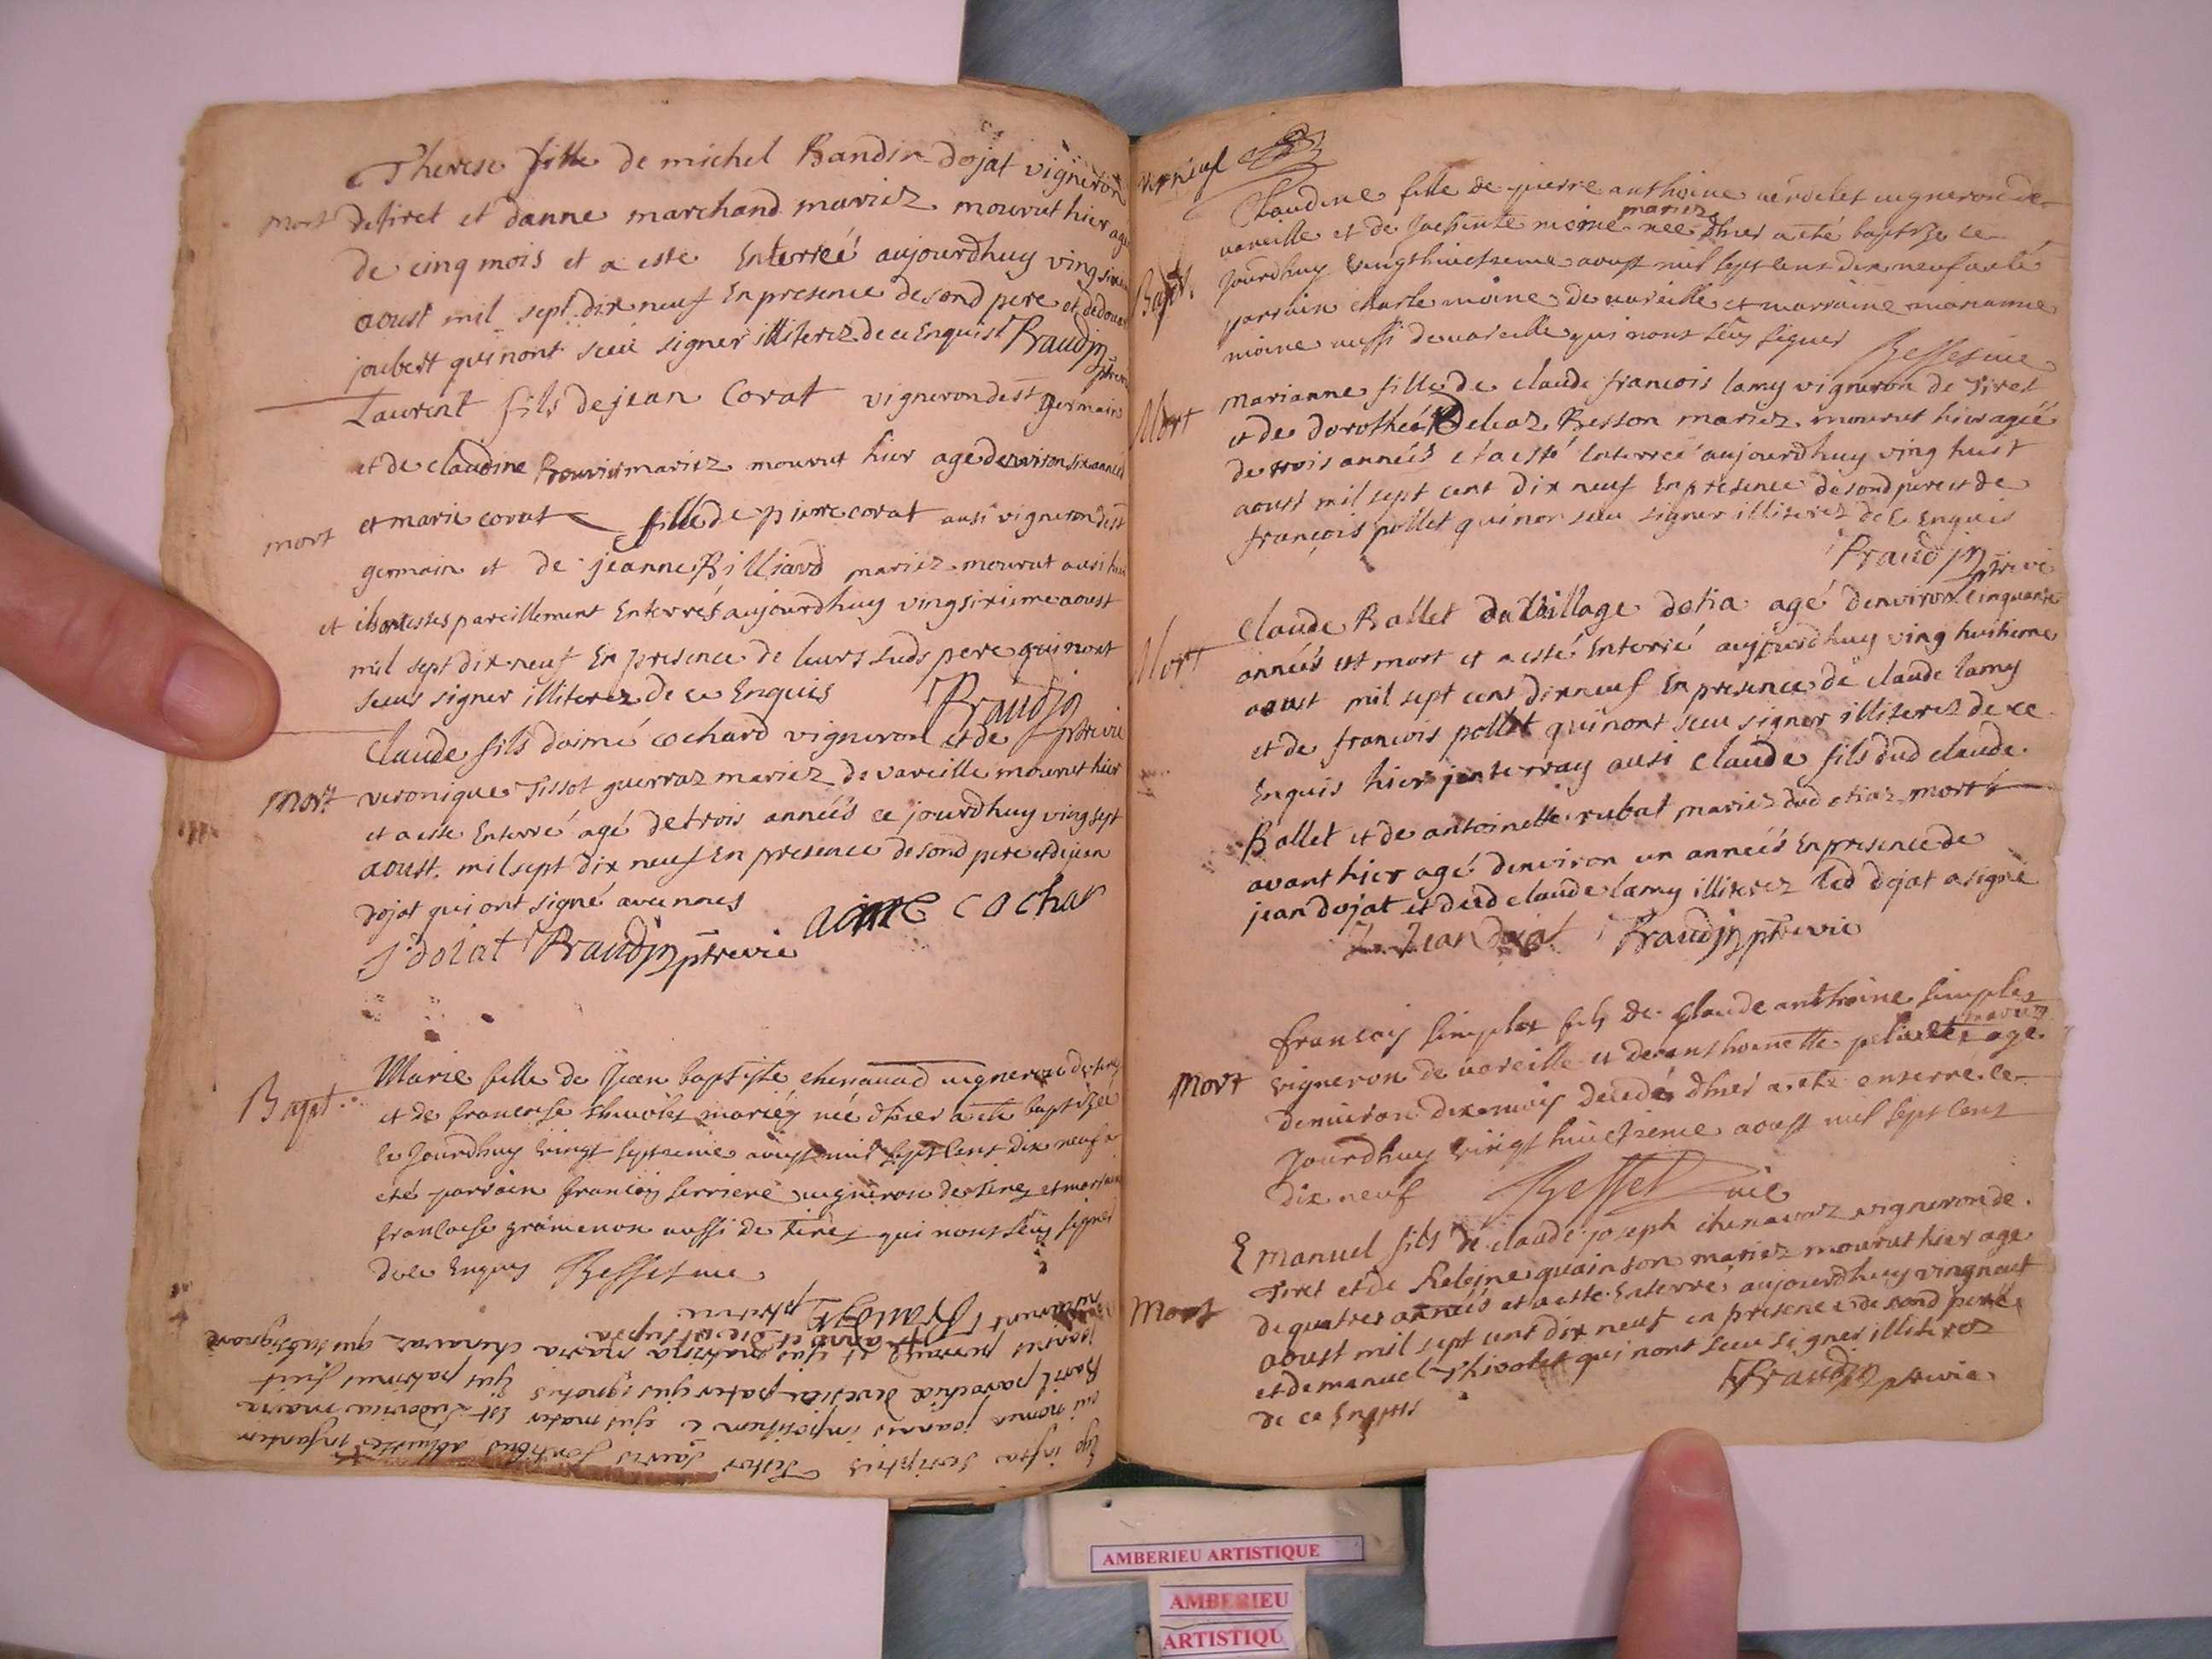 Therese fille de michel Baudin dojat vigneron
mort
de tiret et danne marchand mariez mourut hier agé
de cinq mois et a este Enterreé aujourdhuy ving sixie
aoust mil sept dix neuf En presence de sond pere et de
joubert qui nont sceu signer illiterez de ce Enquist Braudin
ptre vic
Laurent fils de jean Corat vigneron de st germain
et de claudine Bouvier mariez mourut hier age denviron six anneés
mort
et marie corat fille de pierre corat ausi vigneron dest
germain et de jeanne Billiard mariez mourut ausi hier
et ils ont estes pareillement Enterrés aujourdhuy ving sixieme aoust
mil sept dix neuf En presence de leurs suds pere qui nont
sceus signer illiterez de ce Enquis Braudin
ptre vic
Claude fils daimé cochard vigneron et de
Mort
veronique Tissot guerraz mariez de vareille mourut hier
et a este Enterré agé de trois anneés ce jourdhuy ving sept
aoust mil sept dix neuf En presence de sond pere et de jean
dojat qui ont signé avec nous
aime cochar
J doiat Braudin ptre vic
Bapt.
Marie fille de Jean baptiste chenavad vigneron de tiret
et de francoise thivolet mariez née dhier a ete baptizée
ce jourdhuy vingt septieme aoust mil sept cens dix neuf a
eté parrain francois ferriere vigneron de tiret et marraine
francoise gramenon aussi de tiret qui nont seus signer
de ce enquis Besset vic
Ego infra scriptus Testor sacris fontibus abluisse infantem
cui nomen joannes impositum e ejus mater est Ludovica maria
parochia pater ejus ignotus Ejus patrinus fuit
joannes et ejus matrina maria chenavaz qui subsignare
anno et die ut supra
Braudin ptre vic
Bapt.
Claudine fille de pierre anthoine verdelet vigneron de
vareille et de Jacheinte moine mariez née dhier a eté baptizée ce
jourdhuy vingt huictieme aoust mil sept cens dix neuf a eté
parrain charle moine de vareille et marraine marianne
moine aussi de vareille qui nont seus signer
Besset vic
Mort
Marianne fille de claude francois lamy vigneron de Tiret
et de dorotheé Delcaz Besson mariez mourut hier ageé
de trois anneés et a esté Enterreé aujourdhuy ving huit
aoust mil sept cent dix neuf En presence de sond pere et de
françois pollet qui non sceu signer illiterez de ce Enquis
Braudin ptre vic
Mort
Claude Ballet du village dotia agé denviron cinquante
anneés est mort et a esté Enterré aujourdhuy ving huitieme
aoust mil sept cent dix neuf En presence de claude lamy
et de francois pollet qui nont sceu signer illiterez de ce
Enquis hier jenterray ausi claude fils dud claude
Ballet et de antoinette rubat mariez dud otiaz mort
avant hier agé denviron un anneés En presence de
jean dojat et dud claude lamy illiterez led dojat a signé
Jean dojat Braudin ptre vic
Mort
francois simplex fils de claude anthoine simplex
vigneron de vareille et de anthoinette mariez agé
denviron dix mois decedé dhier a ete enterre ce
jourdhuy vingt huictieme aoust mil sept cens
dix neuf Besset vic
Mort
Emanuel fils de claude joseph chenavaz vigneron de
Tiret et de heleine quainson mariez mourut hier age
de quatres anneés et a este Enterré aujourdhuy ving neuf
aoust mil sept cent dix neuf en presence de sond pere
et de manuel Thivolet qui nont sceu signer illiterez
de ce Enquis
Braudin ptre vic
AMBERIEU ARTISTIQUE
AMBERIEU
ARTISTIQU